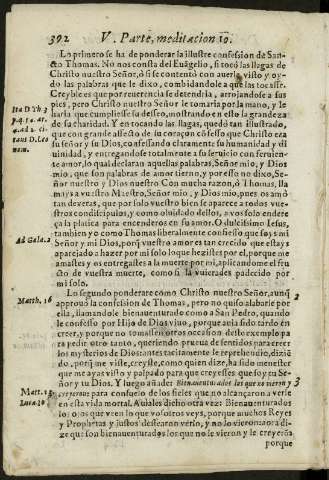 392 V. Parte, meditacion 19.
Lo primero se ha de ponderar la illustre confession de San-
cto Thomas. No nos consta del Euãgelio, si tocò las llagas de
Christo nuestro Señor, ò si se contentò con auerle visto y oy-
do las palabras que le dixo, combidandole a que las tocasse.
Creyble es que por reuerencia se detendria, arrojandose a sus
pies, pero Christo nuestro Señor le tomaria por la mano, y le
haria que cumpliesse su desseo, mostrando en esto la grandeza
de su charidad. Y en tocando las llagas, quedò tan illustrado,
que con grande affecto de su coraçon cõfesso que Christo era
su señor y su Dios, confessando claramente su humanidad y di
uinidad, y entregandose totalmente a su seruicio con feruien-
te amor, lo qual declaran aquellas palabras, Señor mio, y Dios
mio, que son palabras de amor tierno, y por esso no dixo, Se-
ñor nuestro y Dios nuestro. Con mucha razon, ò Thomas, lla
mays a vuestro Maestro, Señor mio, y Dios mio, pues os amò
tan deueras, que por solo vuestro bien se aparece a todos vue-
stros condiscipulos, y como oluidado dellos, a vos solo endere
ça la platica para encenderos en su amor. O dulcissimo Iesus,
tambien yo como Thomas liberalmente confiesso que soys mi
Señor y mi Dios, porq̃ vuestro amor es tan crecido que estays
aparejado a hazer por mi solo loque hezistes por el, porque me
amastes y os entregastes a la muerte por mi, aplicandome el fru
cto de vuestra muerte, como si la vuierades padecido por
mi solo.
Lo segundo ponderare como Christo nuestro Señor, aunq̃
approuò la confession de Thomas, pero no quiso alabarle por
ella, llamandole bienauenturado como a San Pedro, quando
le confesso por Hijo de Dios viuo, porque auia sido tardo en
creer, y porque no tomassen otros occasion deste exemplo pa
ra pedir otro tanto, queriendo prueua de sentidos para creer
los mysterios de Dios: antes tacitamente le reprehendio, diziẽ
do, porq̃ me viste, creyste, como quien dize, ha sido menester
que me ayas visto y palpado para que creyesses que soy tu Se-
ñor y tu Dios. Y luego añade: Bienauenturados los que no vieron y
creyeron: para consuelo de los fieles que no alcançaron a verle
en esta vida mortal. Auiales dicho otra vez: Bienauenturados
los ojos que veen lo que vosotros veys, porque muchos Reyes
y Prophetas y justos dessearon verlo, y no lo vieron: aora di-
ze que son bienauenturados los que no le vieron y le creyerõ
porque
Ad Gala. 2
Matth. 16
2
3